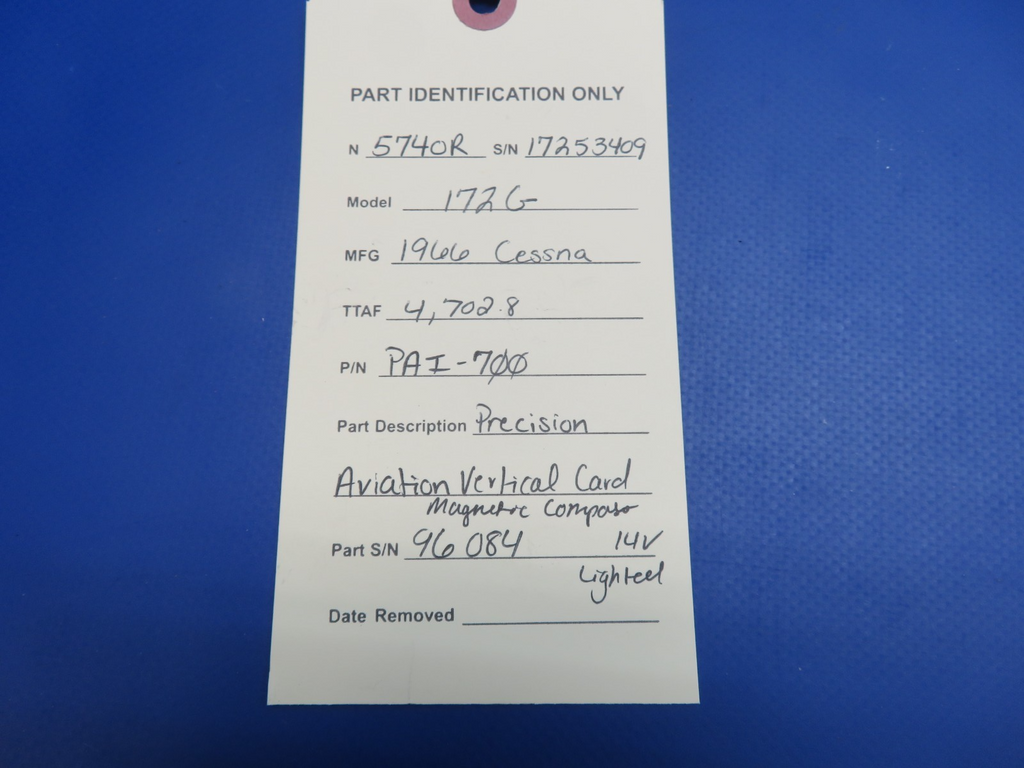 PART IDENTIFICATION ONLY
N 5740R S/N 17253409
Model 172G
MFG 1966 Cessna
TTAF 4,702.8
P/N PAI-700
Part Description Precision
Aviation Vertical Card
Magnetic Compass
Part S/N 96084 14V
Lighted
Date Removed